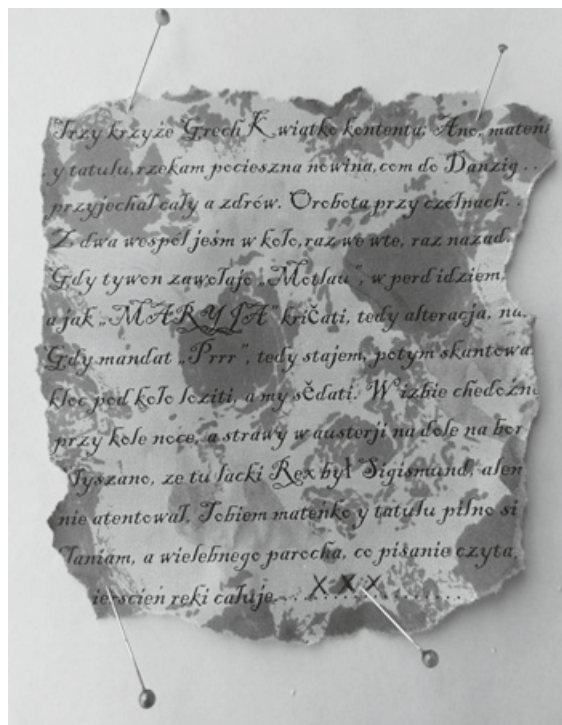 Trzy krzyże Grech Kwiatko kontenta; Ano, mateńk
y tatulu, rzekam pocieszna nowina, com do Danzig . .
przyjechał cały a zdrów. Orobota przy czółnach. .
Z dwa wespół jeśm w koło, raz we wte, raz nazad.
Gdy tywon zawołajo „Motlau", w perd idziem,
a jak „MARYJA" kričati, tedy alteracja, na.
Gdy mandat „Prrr", tedy stajem, potym skantowa
kloc pod koło loziti, a my sědati. W izbie chedożne
przy kole noce, a strawy w austerji na dole na bor
Wyszano, ze tu lacki Rex był Sigismund, alem
nie atentował. Tobiem mateńko y tatulu pilno si
łaniam, a wielebnego parocha, co pisanie czyta,
ierscień reki całuje . . . X X X . . . . . . .